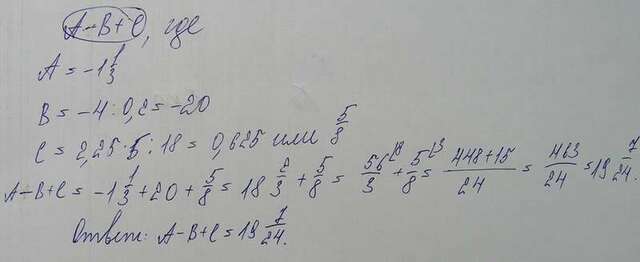 A-B+C, где
A = -1 1/3
B = -4 : 0,2 = -20
C = 2,25 · 5 : 18 = 0,625 или 5/8
A-B+C = -1 1/3 + 20 + 5/8 = 18 2/3 + 5/8 = 56/3 + 5/8 = 448+15/24 = 463/24 = 19 7/24.
Ответ: A-B+C = 19 7/24.